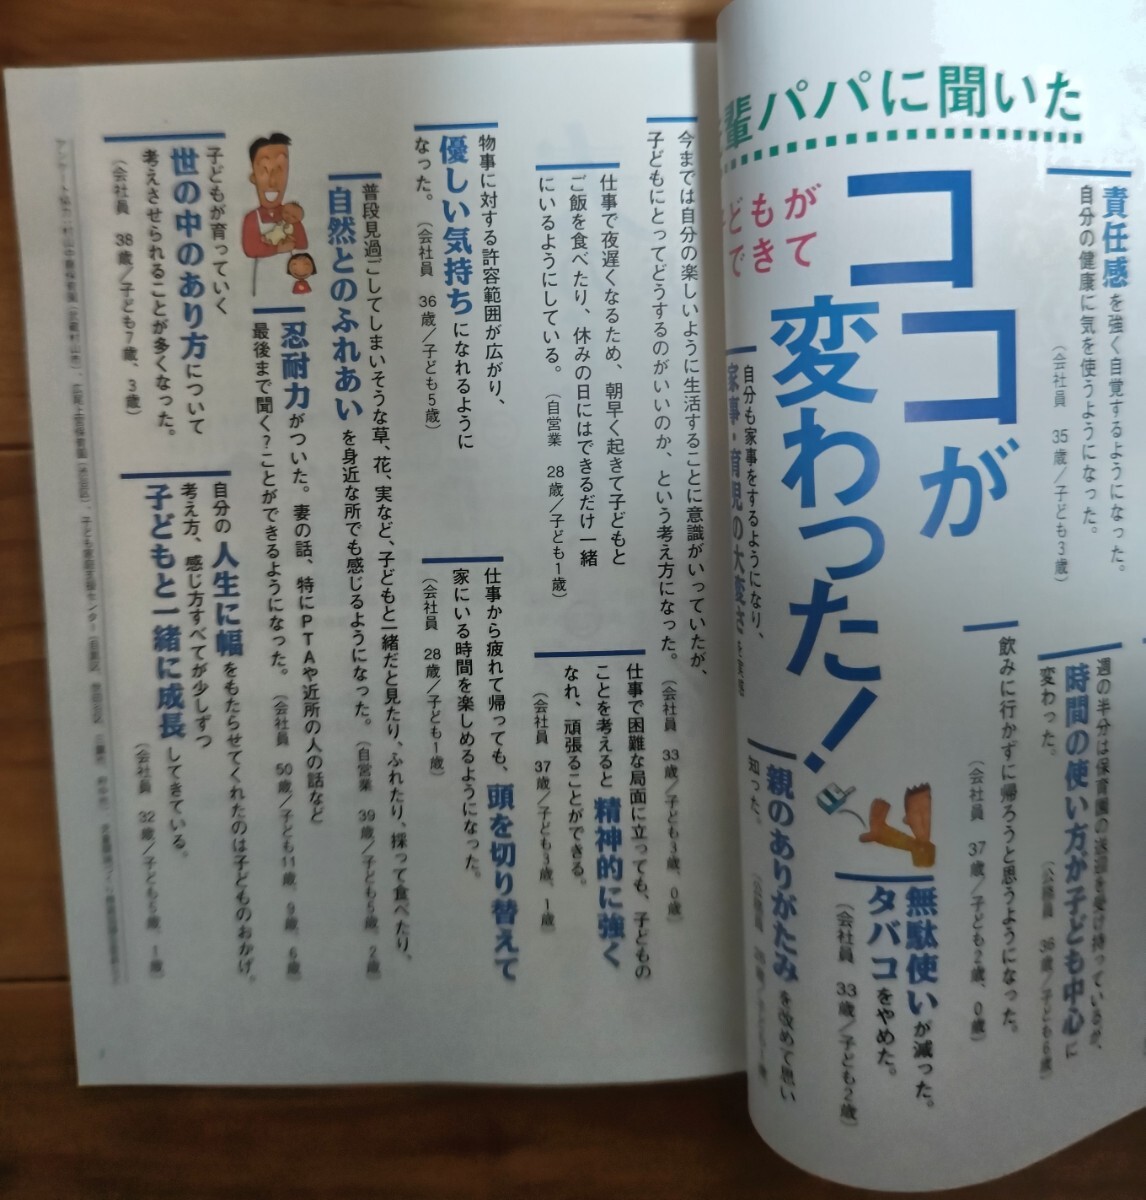 輩パパに聞いた
どもが
できて
ココが
変わった！
責任感を強く自覚するようになった。
自分の健康に気を使うようになった。
（会社員　35歳／子ども3歳）
週の半分は保育園の送迎を受け持っているが、
時間の使い方が子ども中心に
変わった。
（公務員　36歳／子ども6歳）
飲みに行かずに帰ろうと思うようになった。
（会社員　37歳／子ども2歳、0歳）
無駄使いが減った。
タバコをやめた。
（会社員　33歳／子ども2歳）
親のありがたみを改めて思い
知った。
自分も家事をするようになり、
家事・育児の大変さを実感
今までは自分の楽しいように生活することに意識がいっていたが、
子どもにとってどうするのがいいのか、という考え方になった。
（会社員　33歳／子ども3歳、0歳）
仕事で夜遅くなるため、朝早く起きて子どもと
ご飯を食べたり、休みの日にはできるだけ一緒
にいるようにしている。
（自営業　28歳／子ども1歳）
仕事で困難な局面に立っても、子どもの
ことを考えると精神的に強く
なれ、頑張ることができる。
（会社員　37歳／子ども3歳、1歳）
物事に対する許容範囲が広がり、
優しい気持ちになれるように
なった。
（会社員　36歳／子ども5歳）
仕事から疲れて帰っても、頭を切り替えて
家にいる時間を楽しめるようになった。
（会社員　28歳／子ども1歳）
普段見過ごしてしまいそうな草、花、実など、子どもと一緒だと見たり、ふれたり、採って食べたり、
自然とのふれあいを身近な所でも感じるようになった。
（自営業　39歳／子ども5歳、2歳）
忍耐力がついた。妻の話、特にPTAや近所の人の話など
最後まで聞く？ことができるようになった。
（会社員　50歳／子ども11歳、9歳、6歳）
子どもが育っていく
世の中のあり方について
考えさせられることが多くなった。
（会社員　38歳／子ども7歳、3歳）
自分の人生に幅をもたらせてくれたのは子どものおかげ。
考え方、感じ方すべてが少しずつ
子どもと一緒に成長してきている。
（会社員　32歳／子ども5歳、1歳）